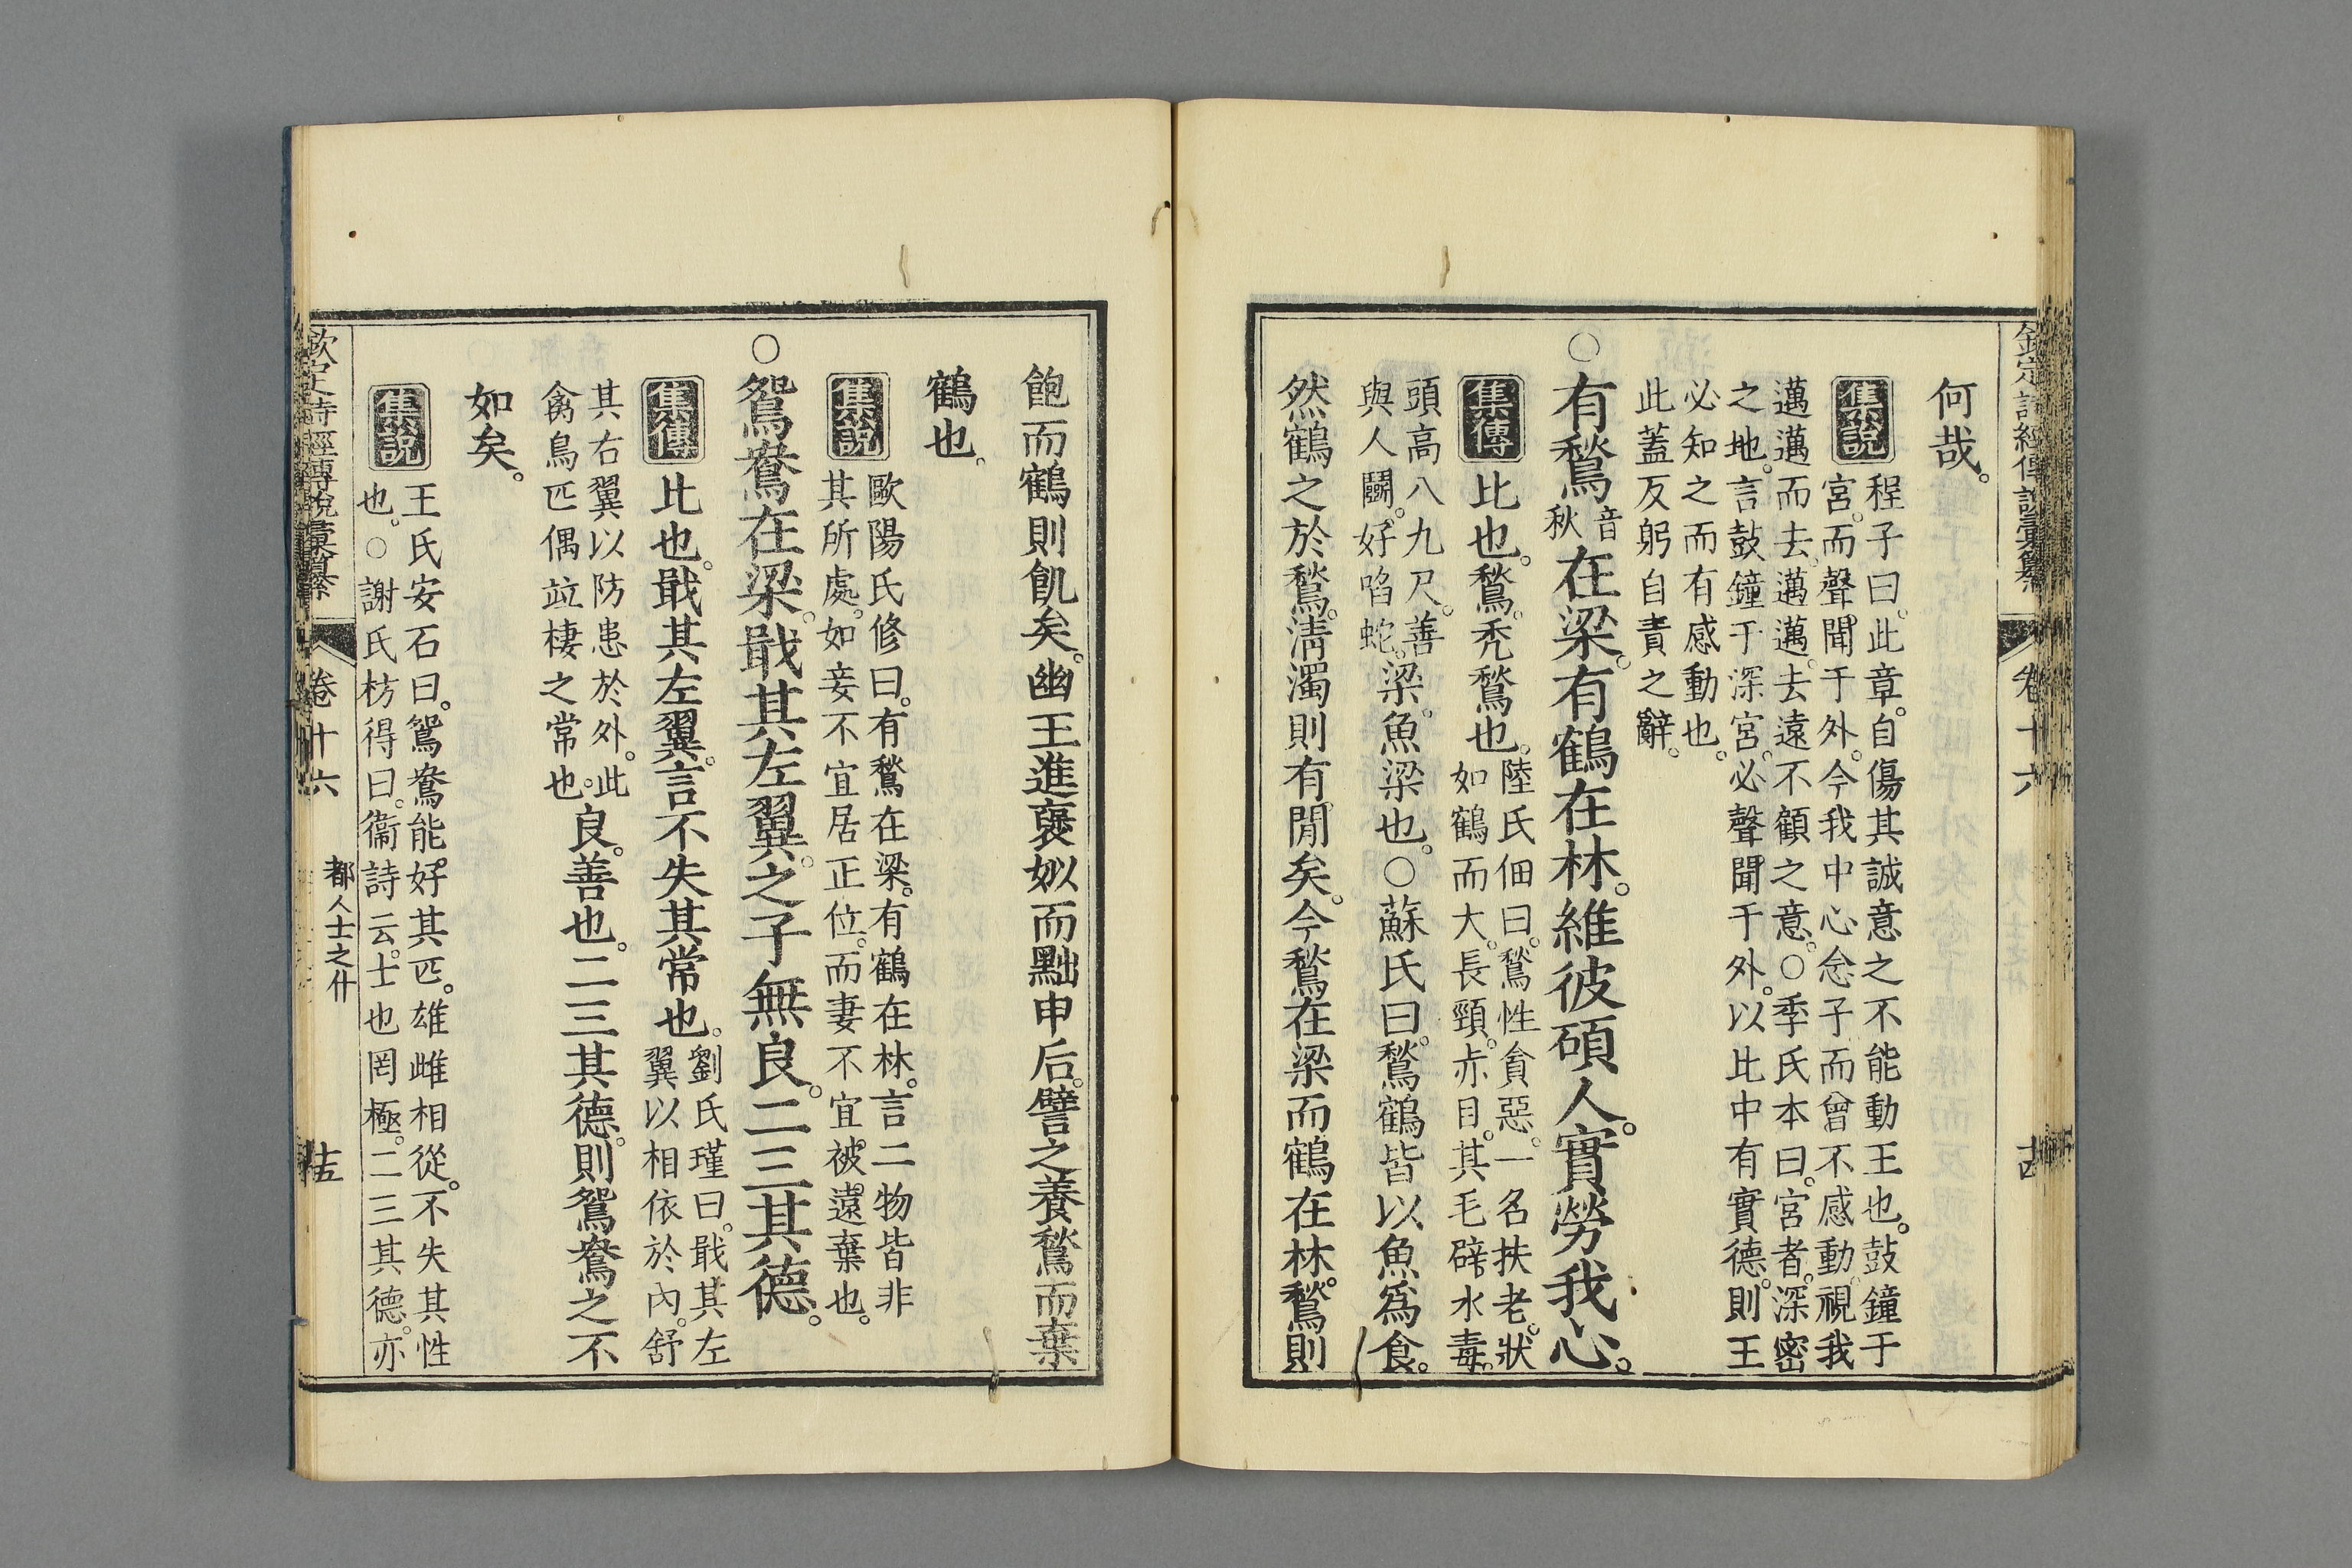 欽定詩經傳說彙纂 卷十六 十四
何哉。
集說 程子曰。此章。自傷其誠意之不能動王也。鼓鐘于
宮。而聲聞于外。今我中心念子而曾不感動。視我
邁邁而去。邁邁。去遠不顧之意。○季氏本曰。宮者。深密
之地。言鼓鐘于深宮。必聲聞于外。以比中有實德。則王
必知之而有感動也。
此蓋反躬自責之辭。
○有鶖音秋在梁。有鶴在林。維彼碩人。實勞我心。
集傳 比也。鶖。禿鶖也。陸氏佃曰。鶖性貪惡。一名扶老。狀
如鶴而大。長頸。赤目。其毛辟水毒。
頭高八九尺。善
與人鬭。好啗蛇。梁。魚梁也。○蘇氏曰。鶖鶴皆以魚爲食。
然鶴之於鶖。淸濁則有閒矣。今鶖在梁而鶴在林。鶖則
飽而鶴則飢矣。幽王進襃姒而黜申后。譬之養鶖而棄
鶴也。
集說 歐陽氏修曰。有鶖在梁。有鶴在林。言二物皆非
其所處。如妾不宜居正位。而妻不宜被遠棄也。
○鴛鴦在梁。戢其左翼。之子無良。二三其德。
集傳 比也。戢其左翼。言不失其常也。劉氏瑾曰。戢其左
翼以相依於內。舒
其右翼以防患於外。此
禽鳥匹偶竝棲之常也。良。善也。二三其德。則鴛鴦之不
如矣。
集說 王氏安石曰。鴛鴦能好其匹。雄雌相從。不失其性
也。○謝氏枋得曰。衞詩云。士也罔極。二三其德。亦
欽定詩經傳說彙纂 卷十六 都人士之什 十五